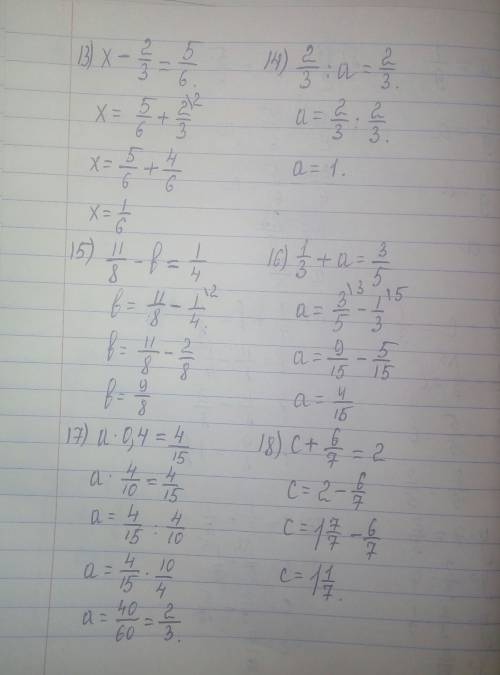 13) x - 2/3 = 5/6.
x = 5/6 + 2/3\2
x = 5/6 + 4/6
x = 1/6
14) 2/3 : a = 2/3.
a = 2/3 : 2/3.
a = 1.
15) 11/8 - b = 1/4
b = 11/8 - 1/4\2
b = 11/8 - 2/8
b = 9/8
16) 1/3 + a = 3/5
a = 3/5\3 - 1/3\5
a = 9/15 - 5/15
a = 4/15
17) a · 0,4 = 4/15
a · 4/10 = 4/15
a = 4/15 : 4/10
a = 4/15 · 10/4
a = 40/60 = 2/3.
18) c + 6/7 = 2
c = 2 - 6/7
c = 1 7/7 - 6/7
c = 1 1/7.